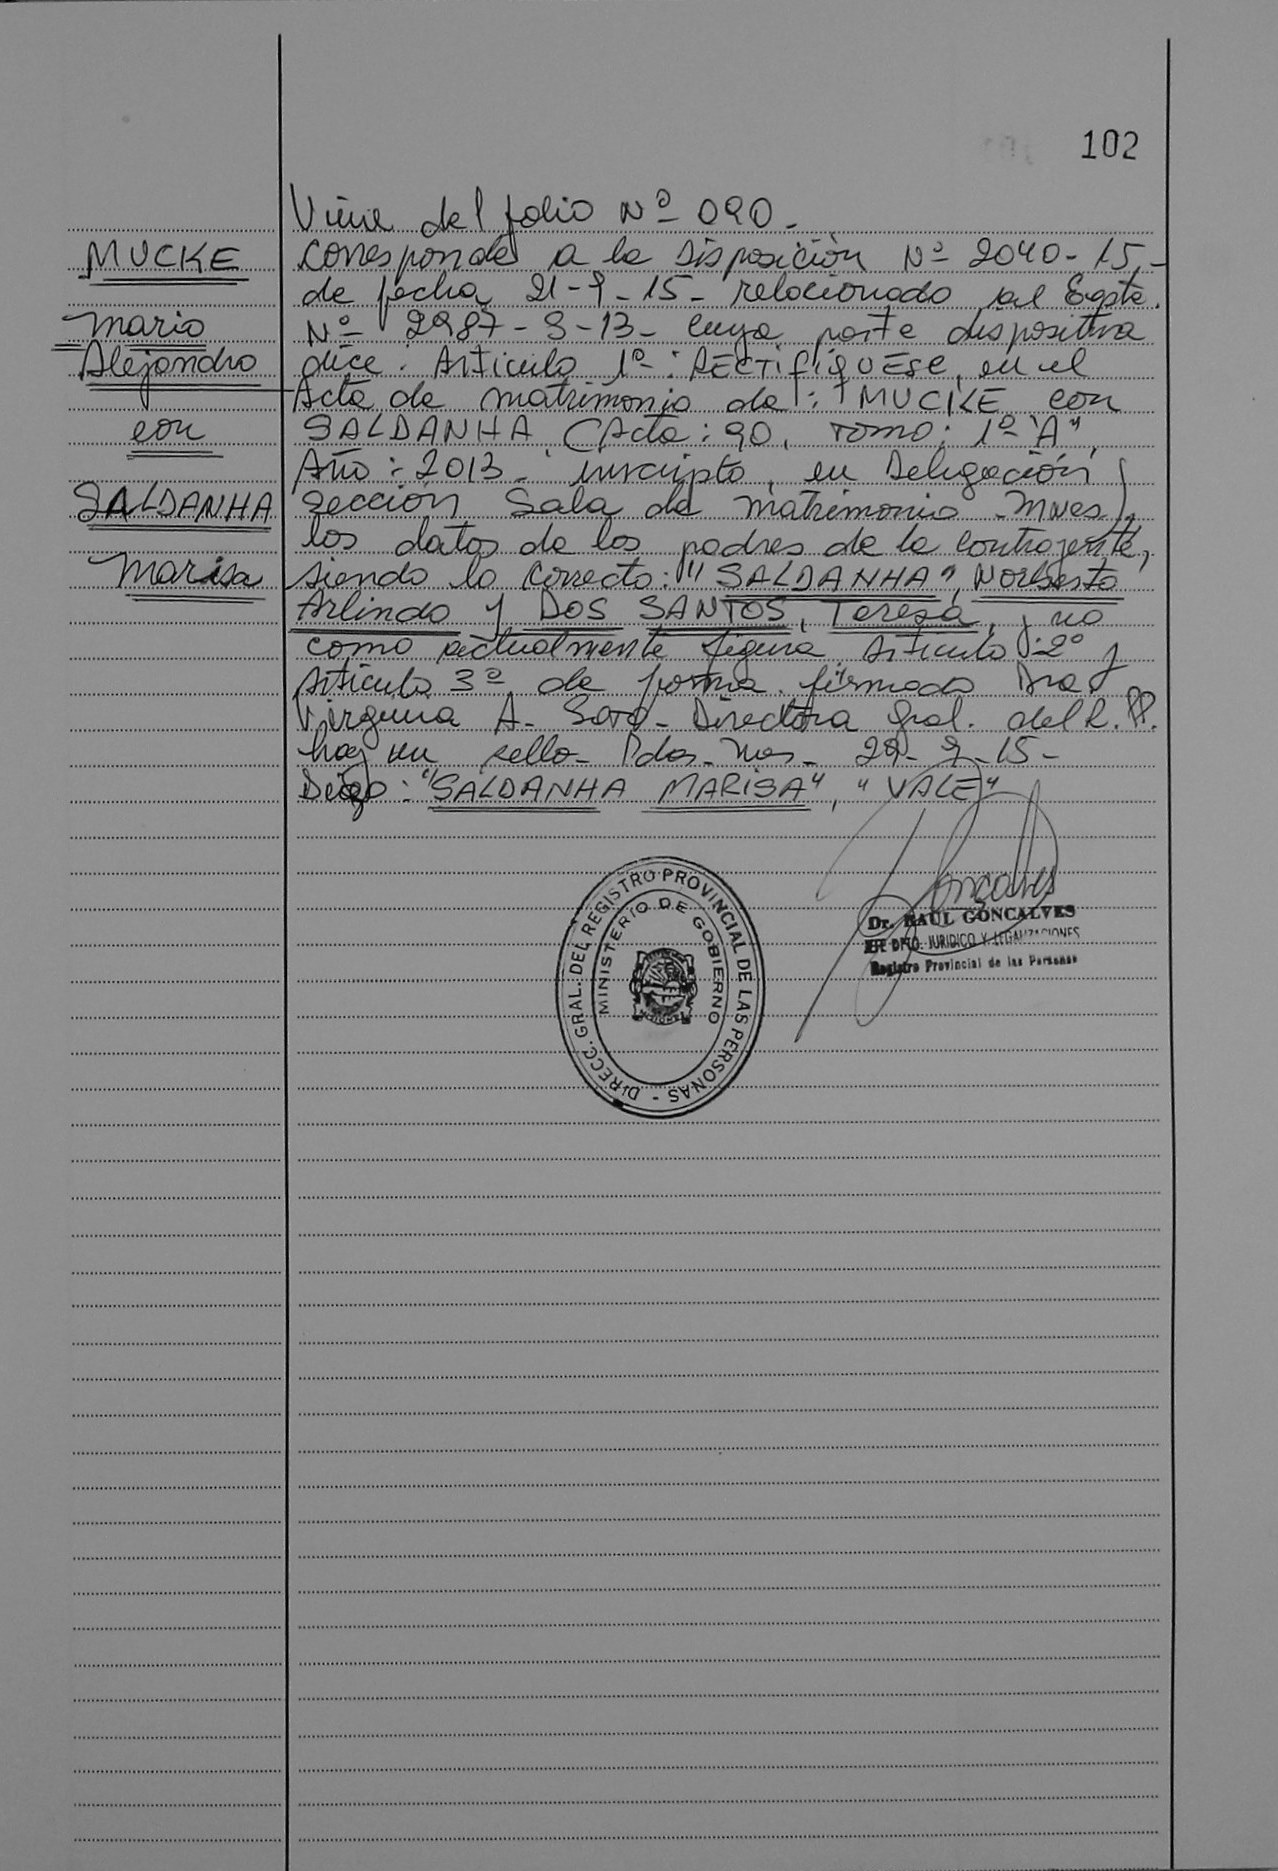 102
MUCKE
Mario
Alejandro
con
SALDANHA
Marisa
Viene del folio Nº 090.
corresponde a la Disposición Nº 2040-15,-
de fecha 21-9-15- relacionado al Expte.
Nº 2987-S-13- cuya parte dispositiva
dice: Artículo 1º: RECTIFÍQUESE, en el
Acta de matrimonio de: MUCKE con
SALDANHA (Acta: 90, Tomo: 1º "A",
Año: 2013- inscripto en Delegación
sección Sala de Matrimonio-Mnes)
los datos de los padres de la contrayente,
siendo lo correcto: "SALDANHA", Norberto
Arlindo y DOS SANTOS, Teresa, y no
como actualmente figura. Artículo 2º y
Artículo 3º de forma. firmado Dra
Virginia A. Soto- Directora Gral. del R.PP.
hay un sello- Pdas. Mes- 29-9-15-
Digo: "SALDANHA MARISA", "VALE"
Goncalves
Dr. RAUL GONCALVES
JEFE DPTO. JURIDICO Y LEGALIZACIONES
Registro Provincial de las Personas
DIRECC. GRAL. DEL REGISTRO PROVINCIAL DE LAS PERSONAS -
MINISTERIO DE GOBIERNO